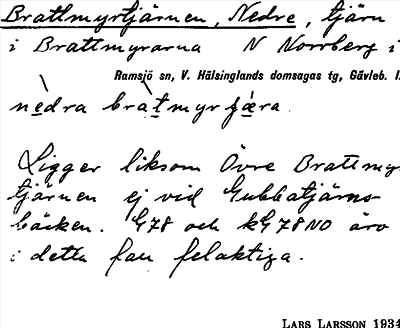 Brattmyrtjärnen, Nedre, tjärn
i Brattmyrarna N Norrberg i
Ramsjö sn, V. Hälsinglands domsagas tg, Gävleb. l.
nedra bratmyr
Ligger liksom Övre Brattmyr
tjärnen ej vid Gubbatjärns-
bäcken. G78 och kG78NO äro
i detta fall felaktiga.
LARS LARSSON 1934